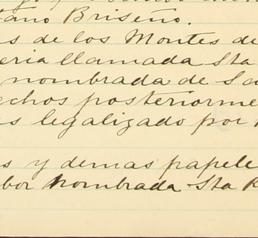 tano Briseno.
s de los Montes de
eria llamada Sta
nombrada de Sa
echos posteriorme
s legalizado por
s y demas papele
bor Nombrada Sta R